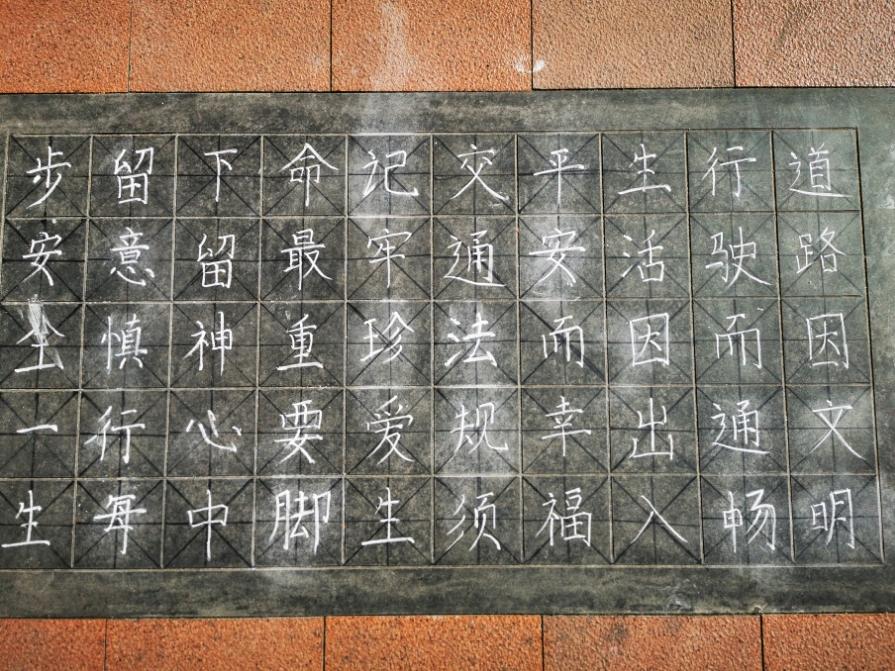 道路因文明
行驶而通畅
生活因出入
平安而幸福
交通法规须
记牢珍爱生
命最重要脚
下留神心中
留意慎行每
步安全一生